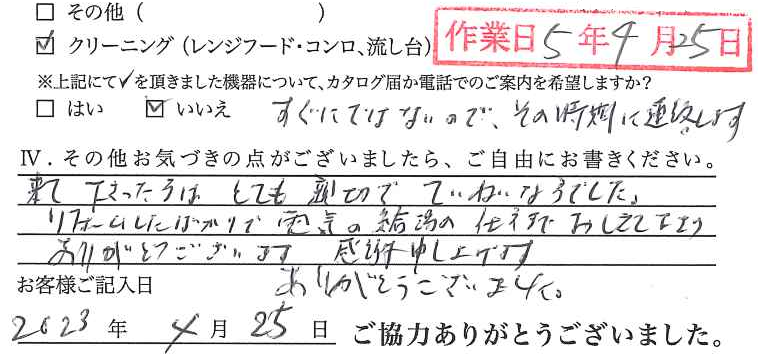 □ その他 (　　　　　　　　)
☑ クリーニング (レンジフード・コンロ、流し台)
作業日 5年4月25日
※上記にて✓を頂きました機器について、カタログ届か電話でのご案内を希望しますか?
□ はい ☑ いいえ すぐにではないので、その時期に連絡します
Ⅳ．その他お気づきの点がございましたら、ご自由にお書きください。
来て下さった方は とても親切で ていねいな方でした。
リフォームしたばかりで 電気の給湯の仕方まで おしえて下さり
ありがとうございます 感謝申し上げます
ありがとうございました。
お客様ご記入日
2023年 4月25日 ご協力ありがとうございました。